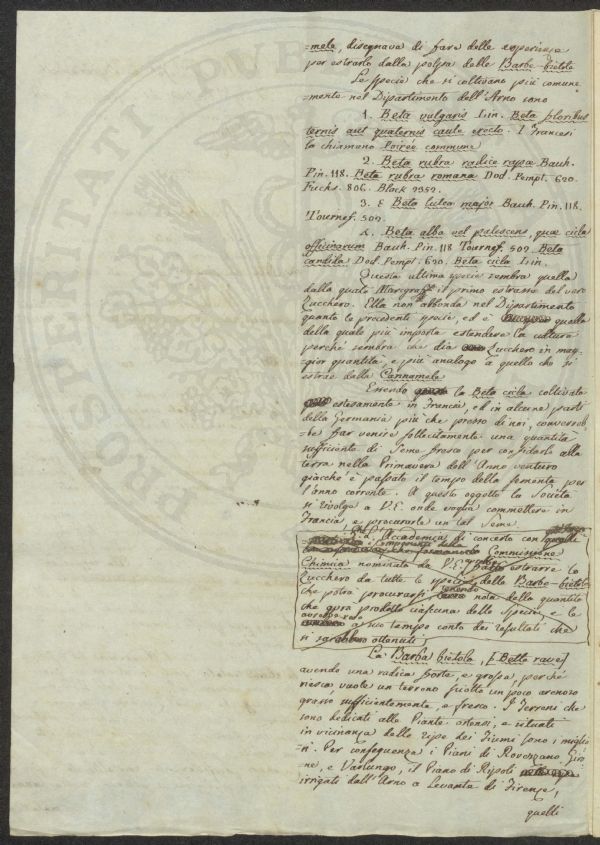 =mele, disegnava di fare delle esperienze
per estrarlo dalla polpa delle Barbe-bietole
Le specie che si coltivano più comune
=mente nel Dipartimento dell'Arno sono
1. Beta vulgaris Lin. Beta floribus
ternis aut quaternis caule erecto. I Francesi
la chiamano Poirée commune
2. Beta rubra radice rapae Bauh.
Pin. 118. Beta rubra romana Dod. Pempt. 620.
Fuchs. 806. Black
3. Beta lutea major Bauh. Pin. 118.
Tournef. 502.
4. Beta alba vel palescens, quae cicla
officinarum Bauh. Pin. 118 Tournef. 502 Beta
candida Dod. Pempt. 620. Beta cicla Lin.
Questa ultima specie sembra quella
dalla quale Marcgraf il primo estrasse del vero
Zucchero. Ella non abbonda nel Dipartimento
quanto le precedenti specie, ed è quella
della quale più importa estendere la cultura
perché sembra che dia Zucchero in mag-
gior quantità, e più analogo a quello che si
estrae dalla Cannamele
Essendo la Beta cicla coltivata
estesamente in Francia, ed in alcune parti
della Germania più che presso di noi, converreb
=be far venire sollecitamente una quantità
sufficiente di Seme fresco per confidarlo alla
terra nella Primavera dell'Anno venturo
giacché è passato il tempo della sementa per
l'anno corrente. A questo oggetto la Società
si rivolge a V.E. onde voglia commettere in
Francia, e procurarle un tal Seme.
Accademia di concerto con
Commissione
Chimica nominata da V.E. estrarre lo
Zucchero da tutte le specie delle Barbe-bietole
che potrà procurarsi tenendo nota della quantità
che avrà prodotto ciascuna delle Specie e le
a suo tempo conto dei resultati che
si sarebbero ottenuti
La Barba bietola, [Bette rave]
avendo una radice forte, e grossa, perché
riesca, vuole un terreno sciolto un poco arenoso
grasso sufficientemente, e fresco. I Terreni che
sono dedicati alle Piante ortensi, e situati
in vicinanza delle ripe dei Fiumi sono i miglio
=ri. Per conseguenza i Piani di Rovezzano, Giro
=ne, e Varlungo, il Piano di Ripoli
irrigati dall'Arno a Levante di Firenze,
quelli